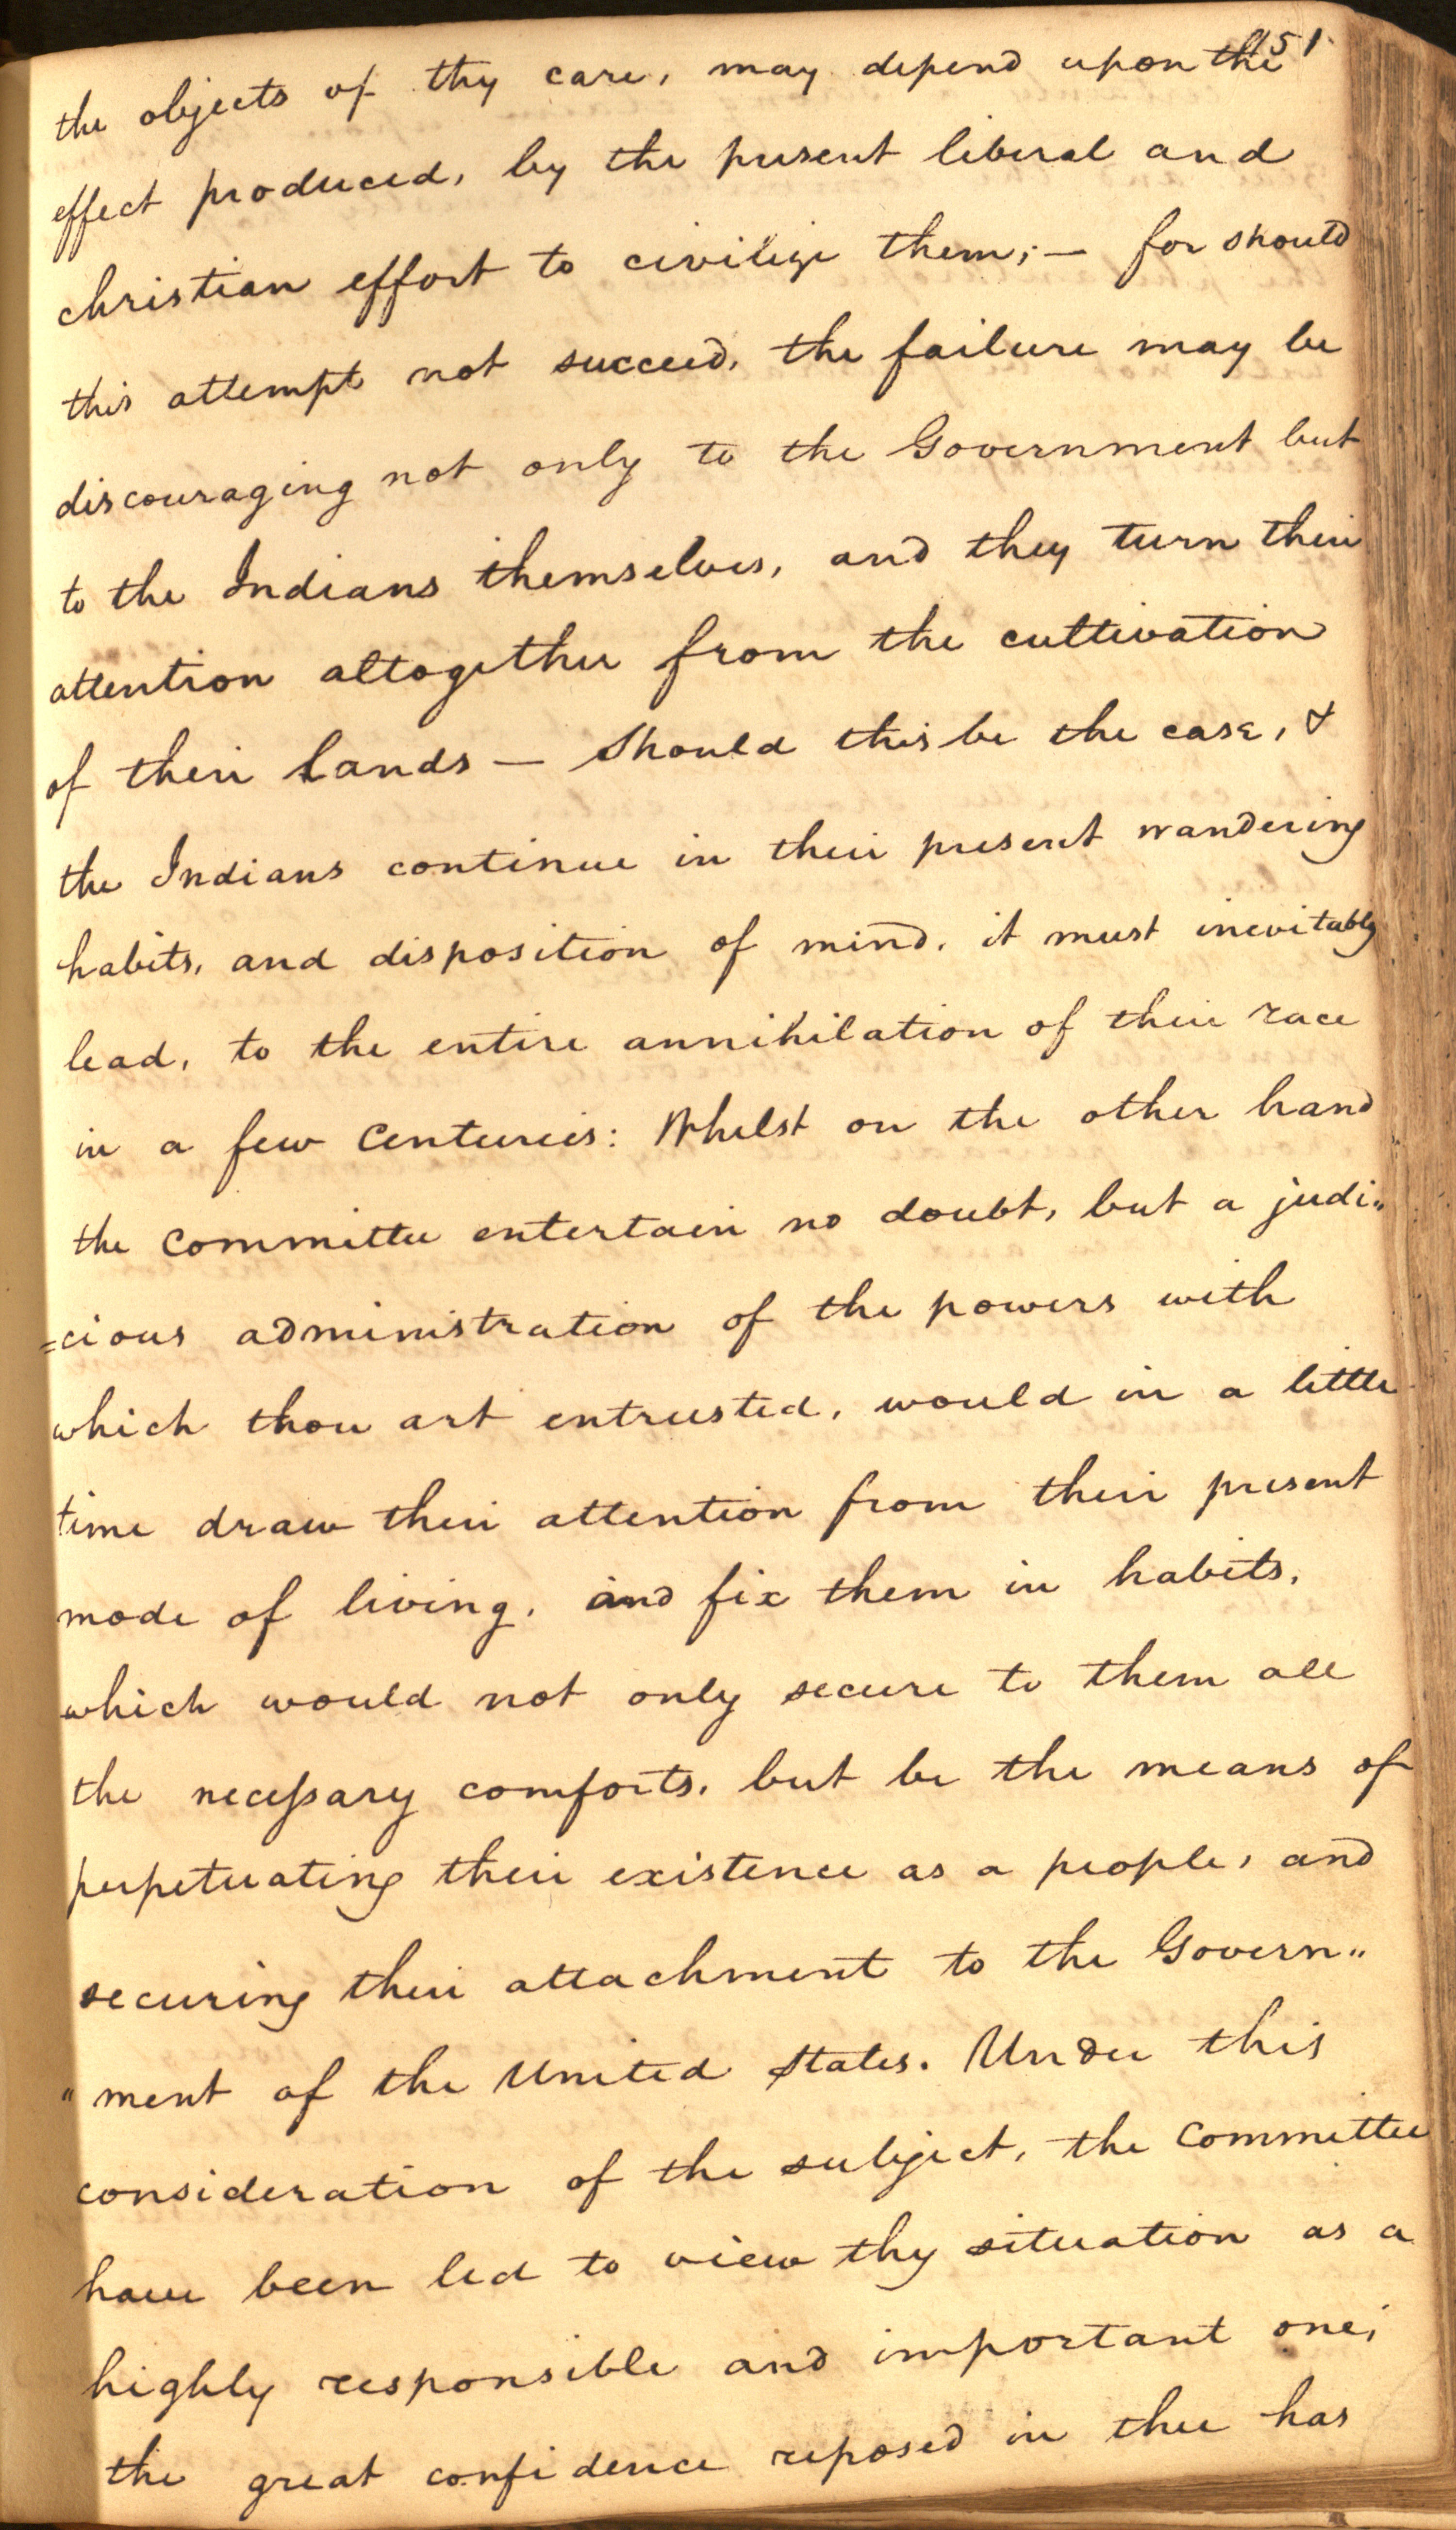 151
the objects of thy care, may depend upon the
effect produced, by the present liberal and
christian effort to civilize them; — for should
this attempt not succeed, the failure may be
discouraging not only to the Government but
to the Indians themselves, and they turn their
attention altogether from the cultivation
of their lands — Should this be the case, &
the Indians continue in their present wandering
habits, and disposition of mind, it must inevitably
lead, to the entire annihilation of their race
in a few Centuries: Whilst on the other hand
the Committee entertain no doubt, but a judi„
=cious administration of the powers with
which thou art entrusted, would in a little
time draw their attention from their present
mode of living, and fix them in habits,
which would not only secure to them all
the necessary comforts, but be the means of
perpetuating their existence as a people, and
securing their attachment to the Govern„
"ment of the United States. Under this
consideration of the subject, the Committee
have been led to view thy situation as a
highly responsible and important one;
the great confidence reposed in thee has